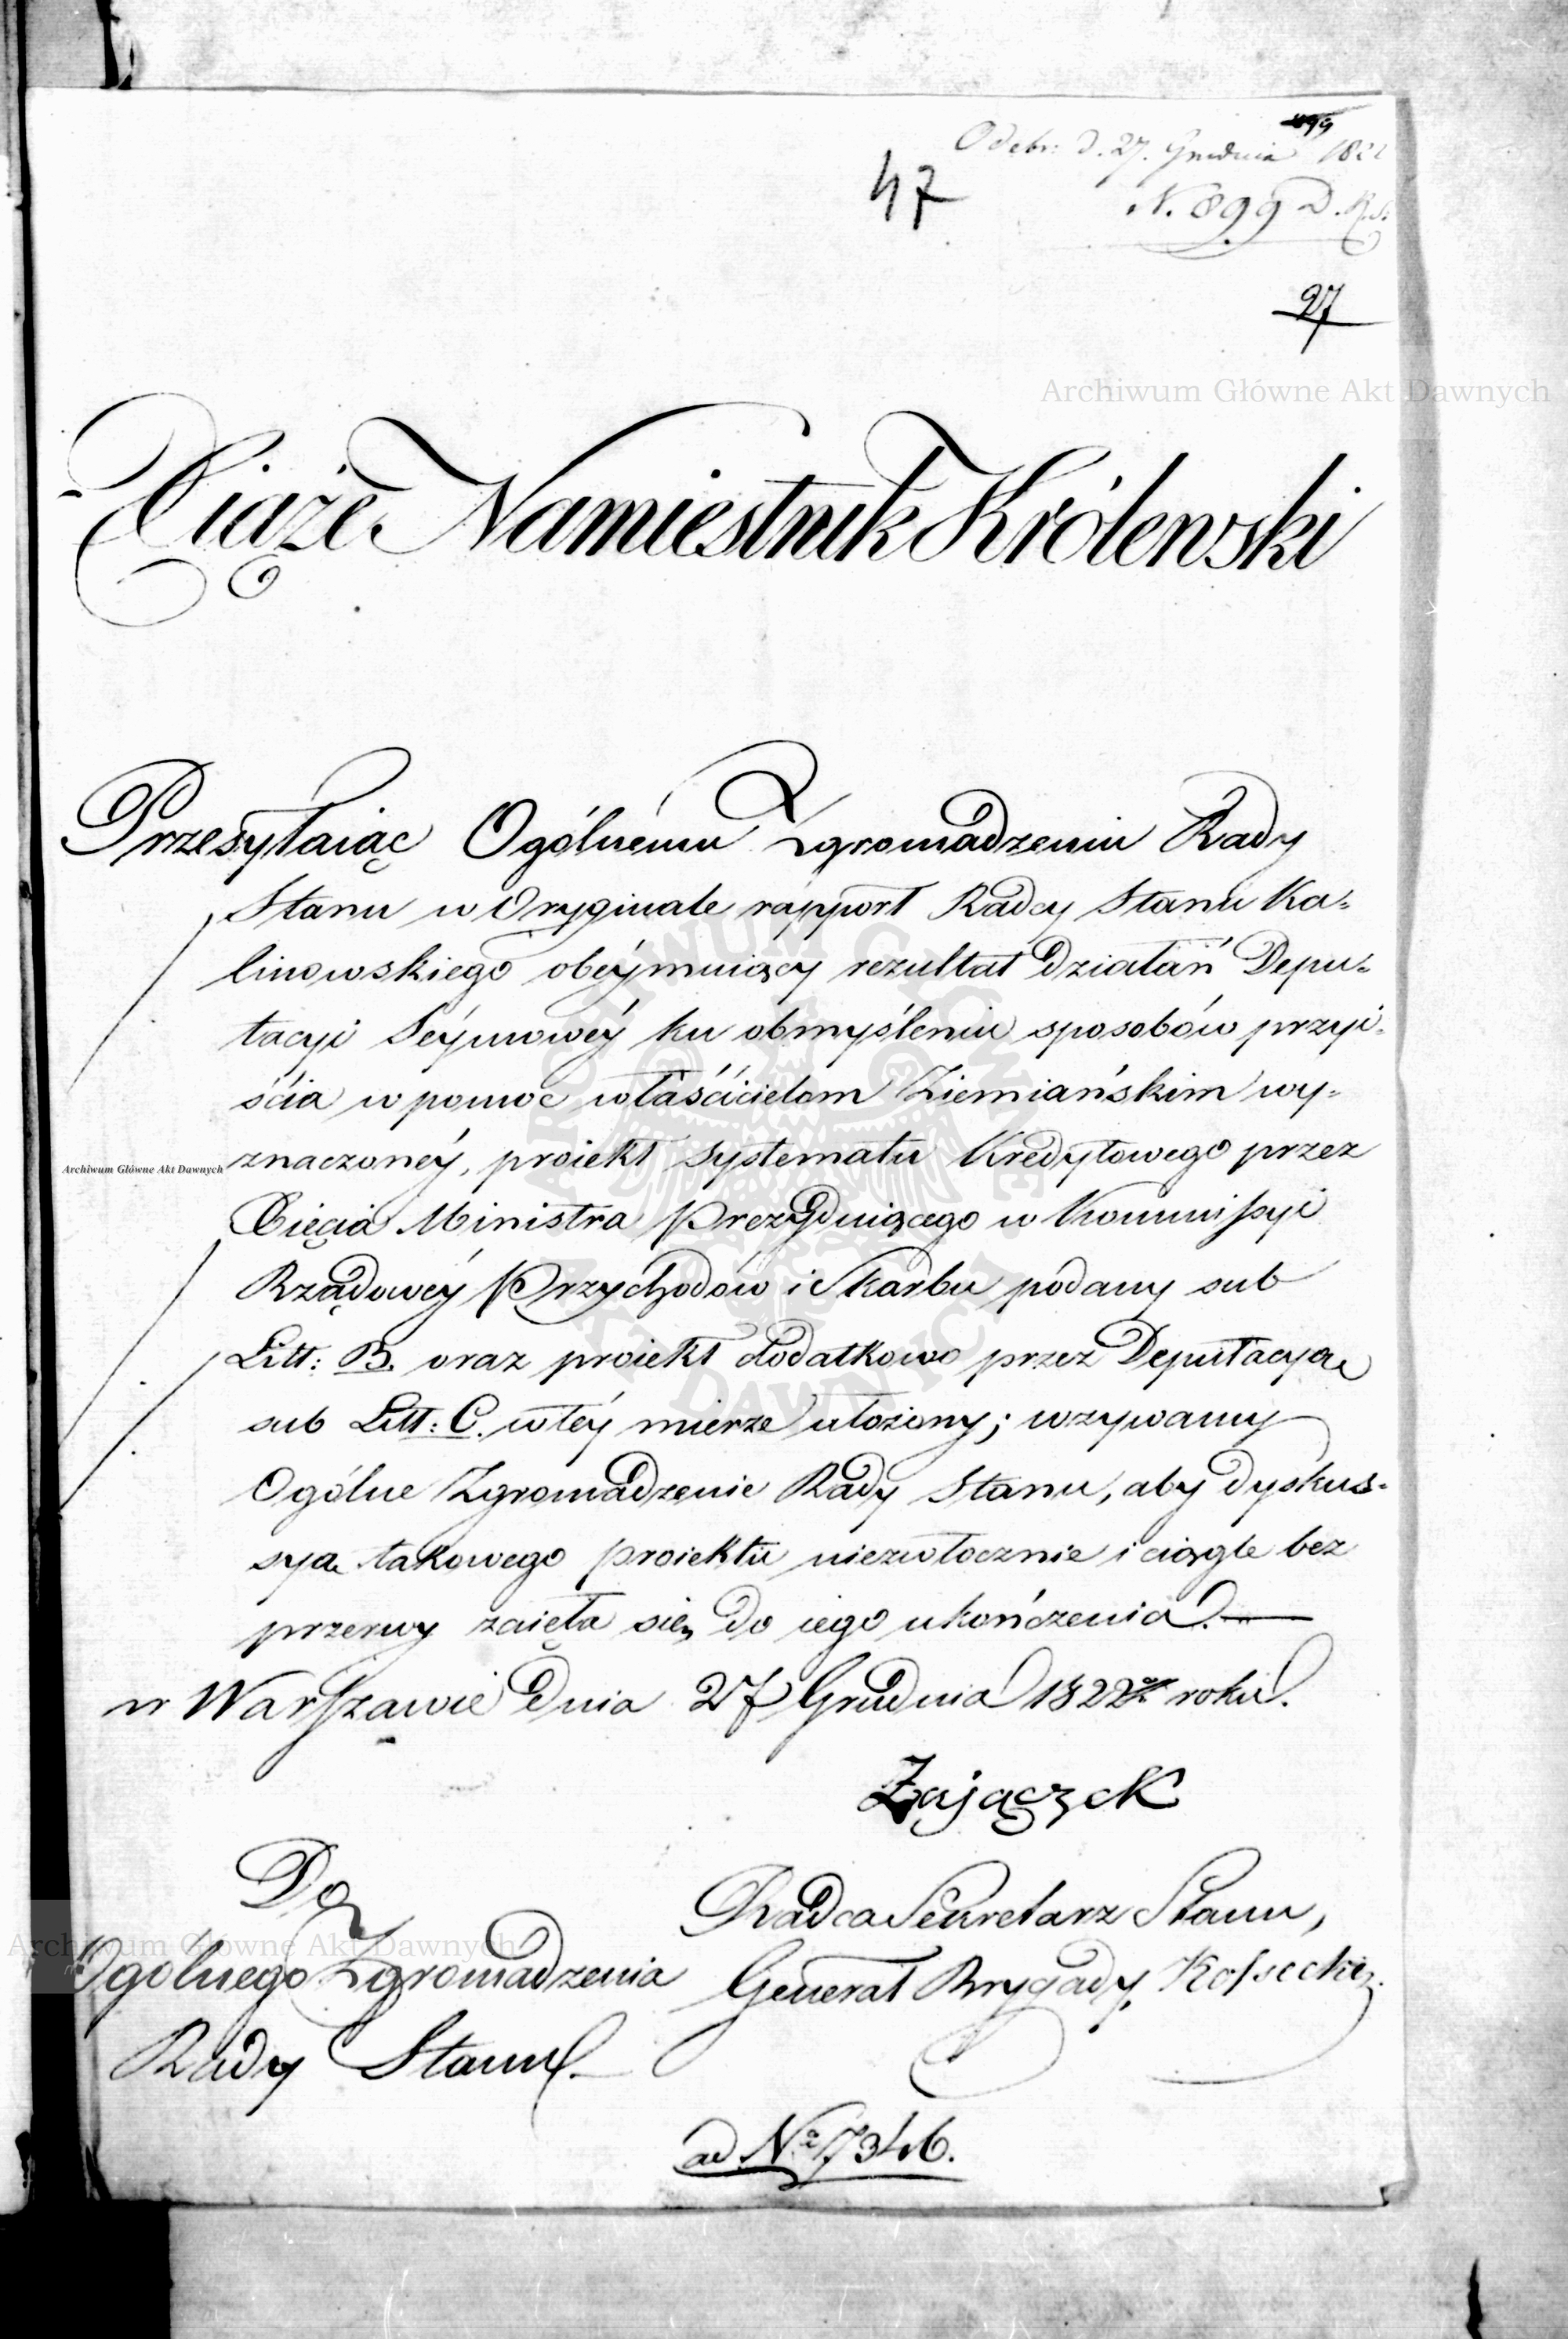 Odebr: d. 27. Grudnia 1822
47
N. 899 D. R. S.
27
Archiwum Główne Akt Dawnych
Xiąże Namiestnik Królewski
Przesyłaiąc Ogólnému Zgromadzeniu Rady
Stanu w Oryginale rapport Radcy Stanu Ka-
linowskiego obeymuiący rezultat działań Depu-
tacyi Seymowéy ku obmyśleniu sposobów przyi-
ścia w pomoc właścicielom Ziemiańskim wy-
znaczonéy, proiekt systematu Kredytowego przez
Archiwum Główne Akt Dawnych
Xięcia Ministra Prezyduiącego w Kommissyi
Rządowéy Przychodów i Skarbu podany sub
Litt: B. oraz proiekt dodatkowo przez Deputacyą
sub Litt: C. w téy mierze ułożony; wzywamy
Ogólne Zgromadzenie Rady Stanu, aby dyskus-
syą takowego proiektu niezwłocznie i ciągle bez
przerwy zaięła się do iego ukończenia.
w Warszawie dnia 27 Grudnia 1822go roku.
Zajączek
Do
Radca Sekretarz Stanu,
Archiwum Główne Akt Dawnych
Ogólnego Zgromadzenia
Generał Brygady, Kossecki
Rady Stanu.
ad No 7346.
ARCHIWUM GŁÓWNE AKT DAWNYCH